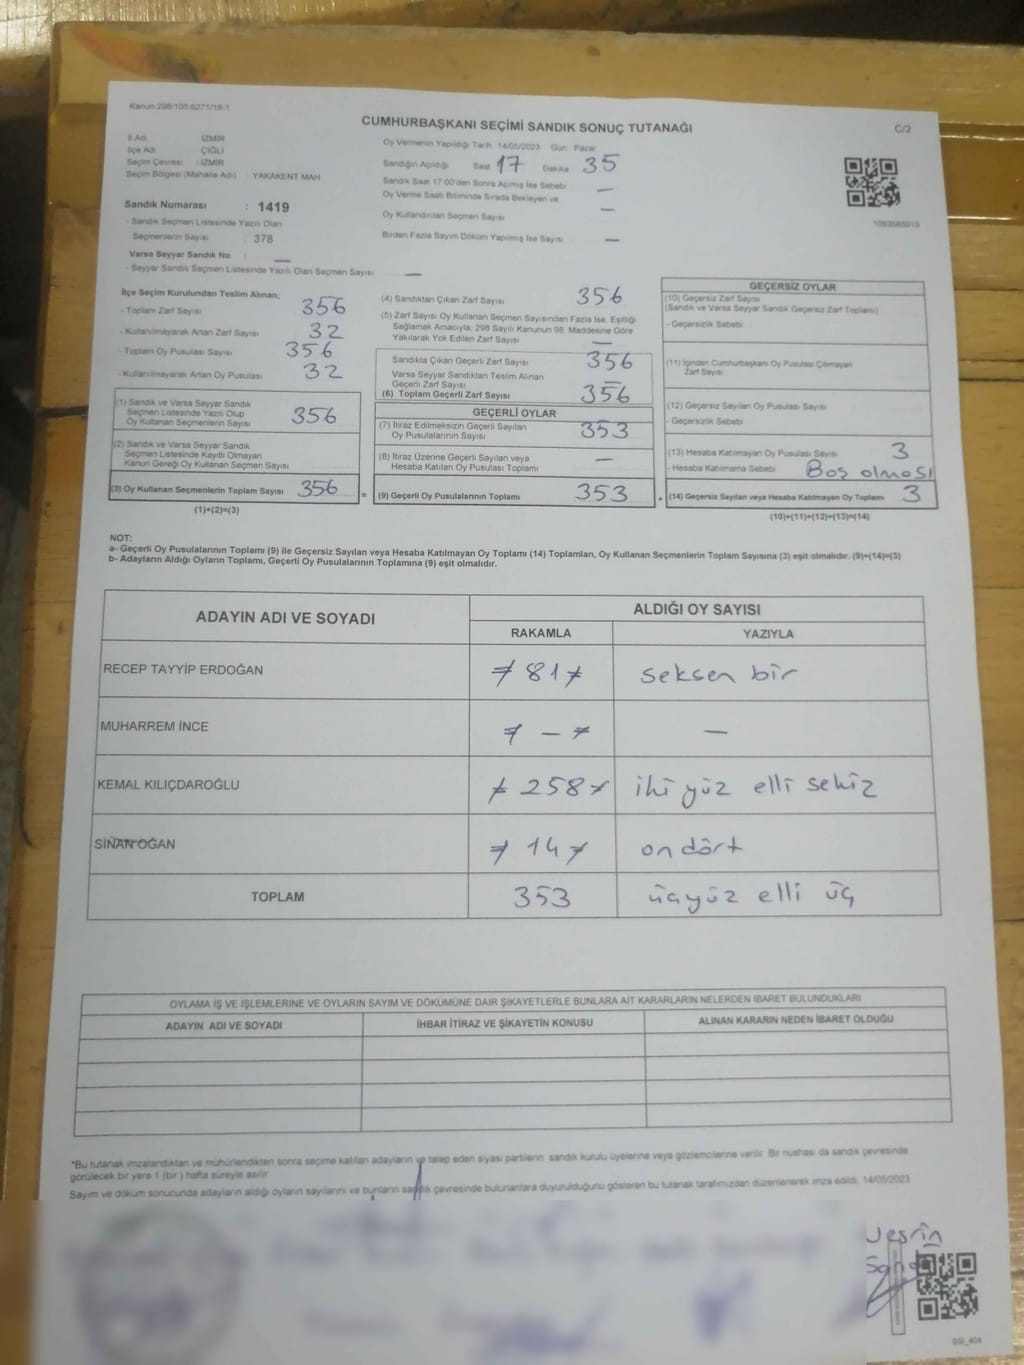 Kanun 298/105 6271/18-1
CUMHURBAŞKANI SEÇİMİ SANDIK SONUÇ TUTANAĞI
C/2
İl Adı İZMİR
İlçe Adı ÇİĞLİ
Seçim Çevresi : İZMİR
Seçim Bölgesi (Mahalle Adı) YAKAKENT MAH.
Sandık Numarası : 1419
- Sandık Seçmen Listesinde Yazılı Olan
Seçmenlerin Sayısı : 378
Varsa Seyyar Sandık No : —
- Seyyar Sandık Seçmen Listesinde Yazılı Olan Seçmen Sayısı —
Oy Vermenin Yapıldığı Tarih 14/05/2023 Gün: Pazar
Sandığın Açıldığı Saat 17 Dakika 35
Sandık Saat 17:00'den Sonra Açılmış İse Sebebi —
Oy Verme Saati Bitiminde Sırada Bekleyen ve
Oy Kullandırılan Seçmen Sayısı —
Birden Fazla Sayım Döküm Yapılmış İse Sayısı —
İlçe Seçim Kurulundan Teslim Alınan;
- Toplam Zarf Sayısı 356
- Kullanılmayarak Artan Zarf Sayısı 32
- Toplam Oy Pusulası Sayısı 356
- Kullanılmayarak Artan Oy Pusulası 32
(1) Sandık ve Varsa Seyyar Sandık
Seçmen Listesinde Yazılı Olup
Oy Kullanan Seçmenlerin Sayısı 356
(2) Sandık ve Varsa Seyyar Sandık
Seçmen Listesinde Kayıtlı Olmayan
Kanun Gereği Oy Kullanan Seçmen Sayısı
(3) Oy Kullanan Seçmenlerin Toplam Sayısı 356
(1)+(2)=(3)
=
(4) Sandıktan Çıkan Zarf Sayısı 356
(5) Zarf Sayısı Oy Kullanan Seçmen Sayısından Fazla İse, Eşitliği
Sağlamak Amacıyla; 298 Sayılı Kanunun 98. Maddesine Göre
Yakılarak Yok Edilen Zarf Sayısı —
Sandıkta Çıkan Geçerli Zarf Sayısı 356
Varsa Seyyar Sandıktan Teslim Alınan
Geçerli Zarf Sayısı —
(6) Toplam Geçerli Zarf Sayısı 356
GEÇERLİ OYLAR
(7) İtiraz Edilmeksizin Geçerli Sayılan
Oy Pusulalarının Sayısı 353
(8) İtiraz Üzerine Geçerli Sayılan veya
Hesaba Katılan Oy Pusulası Toplamı —
(9) Geçerli Oy Pusulalarının Toplamı 353
GEÇERSİZ OYLAR
(10) Geçersiz Zarf Sayısı
(Sandık ve Varsa Seyyar Sandık Geçersiz Zarf Toplamı)
- Geçersizlik Sebebi
(11) İçinden Cumhurbaşkanı Oy Pusulası Çıkmayan
Zarf Sayısı
(12) Geçersiz Sayılan Oy Pusulası Sayısı
- Geçersizlik Sebebi
(13) Hesaba Katılmayan Oy Pusulası Sayısı 3
- Hesaba Katılmama Sebebi Boş olması
(14) Geçersiz Sayılan veya Hesaba Katılmayan Oy Toplamı 3
(10)+(11)+(12)+(13)=(14)
NOT:
a- Geçerli Oy Pusulalarının Toplamı (9) ile Geçersiz Sayılan veya Hesaba Katılmayan Oy Toplamı (14) Toplamları, Oy Kullanan Seçmenlerin Toplam Sayısına (3) eşit olmalıdır. (9)+(14)=(3)
b- Adayların Aldığı Oyların Toplamı, Geçerli Oy Pusulalarının Toplamına (9) eşit olmalıdır.
ADAYIN ADI VE SOYADI
ALDIĞI OY SAYISI
RAKAMLA YAZIYLA
RECEP TAYYİP ERDOĞAN 81 seksen bir
MUHARREM İNCE — —
KEMAL KILIÇDAROĞLU 258 iki yüz elli sekiz
SİNAN OĞAN 14 on dört
TOPLAM 353 üçyüz elli üç
OYLAMA İŞ VE İŞLEMLERİNE VE OYLARIN SAYIM VE DÖKÜMÜNE DAİR ŞİKAYETLERLE BUNLARA AİT KARARLARIN NELERDEN İBARET BULUNDUKLARI
ADAYIN ADI VE SOYADI İHBAR İTİRAZ VE ŞİKAYETİN KONUSU ALINAN KARARIN NEDEN İBARET OLDUĞU
*Bu tutanak imzalandıktan ve mühürlendikten sonra seçime katılan adayların ve talep eden siyasi partilerin sandık kurulu üyelerine veya gözlemcilerine verilir. Bir nüshası da sandık çevresinde
görülecek bir yere 1 (bir) hafta süreyle asılır.
Sayım ve döküm sonucunda adayların aldığı oyların sayılarını ve bunların sandık çevresinde bulunanlara duyurulduğunu gösteren bu tutanak tarafımızdan düzenlenerek imza edildi. 14/05/2023